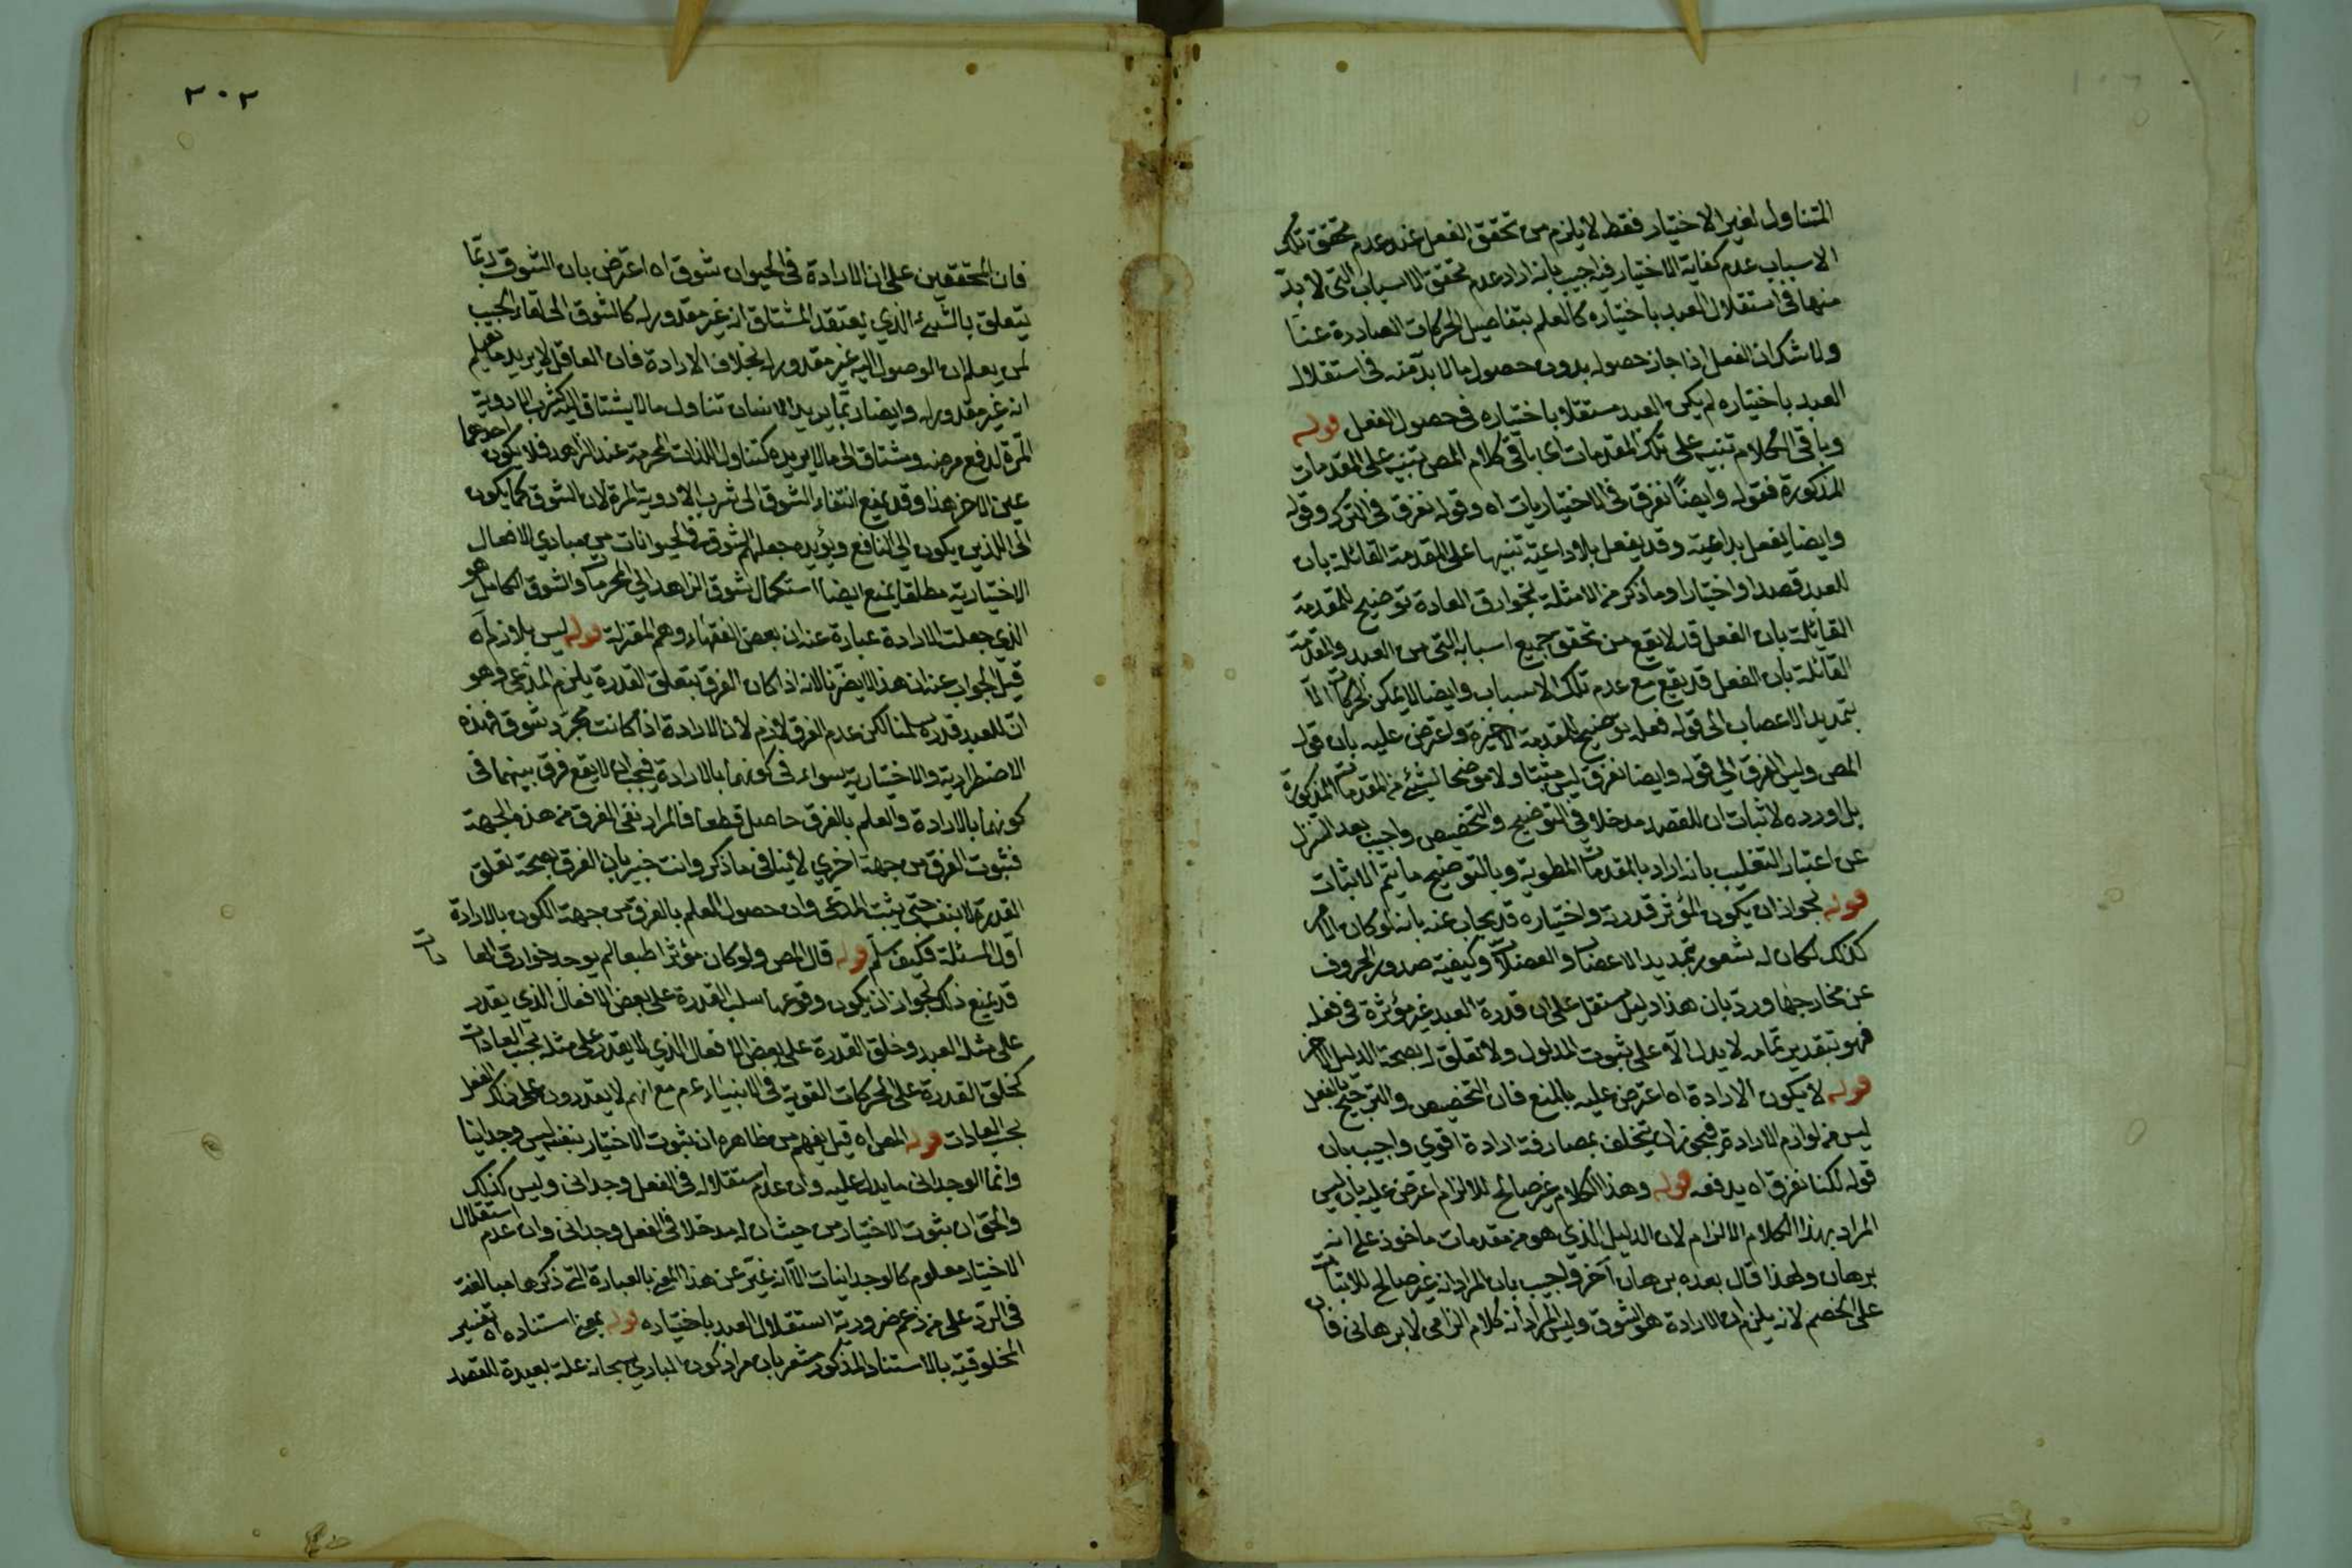 المتناول لغير الاختيار فقط لا يلزم من تحقق الفعل عند عدم تحقق تلك
الاسباب عدم كفاية الاختيار فيه اجيب بانه اراد عدم تحقق الاسباب التي لا بد
منها في استقلال العبد باختياره كالعلم بتفاصيل الحركات الصادرة عنا
ولا شك ان الفعل اذا جاز حصوله بدون حصول ما لا بد منه في استقلال
العبد باختياره لم يكن العبد مستقلا باختياره في حصول الفعل قوله
وباقي الكلام تنبيه على تلك المقدمات اى باقي كلام المص تنبيه على المقدمات
المذكورة فقوله وايضًا نفرق في الاختياريات اه وقوله نفرق في الترك وقوله
وايضا يفعل بداعية وقد يفعل بلا داعية تنبيها على المقدمة القائلة بان
للعبد قصدا واختيارا وما ذكر من الامثلة لخوارق العادة توضيح للمقدمة
القائلة بان الفعل قد لا يقع من تحقق جميع اسبابه التي من العبد والمقدمة
القائلة بان الفعل قد يقع مع عدم تلك الاسباب وايضا لا يمكن الحركات الا
بتمديد الاعصاب الى قوله فعله توضيح للمقدمة الاخيرة واعترض عليه بان قول
المص وليس الفرق الى قوله وايضا نفرق ليس مثبتا ولا موضحا لشئ من المقدمات المذكورة
بل اورده لاثبات ان للقصد مدخلا في التوضيح والتخصيص واجيب بعد التنزل
عن اعتبار التغليب بانه اراد بالمقدمات المطوية وبالتوضيح ما يتم الاثبات
قوله لجواز ان يكون المؤثر قدرته واختياره قد يجاب عنه بانه لو كان الامر
كذلك لكان له شعور بتمديد الاعصاب والعضلات وكيفية صدور الحروف
عن مخارجها ورد بان هذا دليل مستقل على ان قدرة العبد غير مؤثرة في فعله
فهو بتقدير تمامه لا يدل الا على ثبوت المدلول ولا تعلق له بصحة الدليل الاخر
قوله لا يكون الارادة اه اعترض عليه بالمنع فان التخصيص والترجيح بالفعل
ليس من لوازم الارادة فيجوز ان يتخلف بمصادفة ارادة اقوي واجيب بان
قوله لكنا نفرق اه يدفعه قوله وهذا الكلام غير صالح للالزام اعترض عليه بان ليس
المراد بهذا الكلام الالزام لان الدليل الذي هو من مقدمات ماخوذ على انه
برهان ولهذا قال بعده برهان آخر واجيب بان المراد انه غير صالح للاثبات
على الخصم لانه يلزم ان الارادة هو الشوق وليس المراد انه كلام الزامى لا برهانى فان
٢٠٢
فان المحققين على ان الارادة في الحيوان شوق اه اعترض بان الشوق ربما
يتعلق بالشئ الذي يعتقد المشتاق انه غير مقدور له كالشوق الى لقاء الحبيب
لمن يعلم ان الوصول اليه غير مقدور له بخلاف الارادة فان العاقل لا يريد ما يعلم
انه غير مقدور له وايضا ربما يريد الانسان تناول ما لا يشتاق اليه كشرب الادوية
المرة لدفع مرضه ويشتاق الى ما لا يريده كتناول اللذات المحرمة عند الزاهد فلا يكون احدهما
عين الاخر هذا وقد يمنع انتفاء الشوق الى شرب الادوية المرة لان الشوق كما يكون
الى اللذيذ يكون الى النافع ويؤيده جعلهم الشوق في الحيوانات من مبادي الافعال
الاختيارية مطلقا يمنع ايضا استكمال شوق الزاهد الى المحرمات والشوق الكامل هو
الذي جعلت الارادة عبارة عنه ان بعض الفقهاء وهم المعتزلة قوله ليس بلازم اه
قيل الجواب عنه ان هذا لا يضرنا لانه اذا كان الفرق بتعلق القدرة يلزم المدعى وهو
ان للعبد قدرة سلمنا لكن عدم الفرق لازم لان الارادة اذا كانت مجرد شوق فهذه
الاضطرارية والاختيارية سواء في كونهما بالارادة فيجب ان لا يقع فرق بينهما في
كونهما بالارادة والعلم بالفرق حاصل قطعا فالمراد نفى الفرق من هذه الجهة
فثبوت الفرق من جهة اخري لا ينافى ما ذكر وانت خبير بان الفرق بصحة تعلق
القدرة لا ينفى حتى يثبت المدعى وان حصول العلم بالفرق من جهة الكون بالارادة
اول المسئلة فكيف سلم قوله قال المص ولو كان مؤثرا طبعا لم يوجد خوارق العادات
قد يمنع ذلك لجواز ان يكون وقوعها سلب القدرة على بعض الافعال الذي يقدر
على مثله العبد وخلق القدرة على بعض الافعال الذي لا يقدر على مثله بحسب العادات
كخلق القدرة على الحركات القوية في الانبياء ءم مع انهم لا يقدرون على ذلك الفعل
بحسب العادات قوله المص اه قيل يفهم من ظاهره ان ثبوت الاختيار بنفسه ليس وجدانيا
وانما الوجدانى ما يدل عليه وان عدم استقلاله في الفعل وجدانى وليس كذلك
والحق ان ثبوت الاختيار من حيث ان له مدخلا في الفعل وجدانى وان عدم استقلال
الاختيار معلوم كالوجدانيات الا انه عبر عن هذا المعنى بالعبارة التي ذكرها مبالغة
في الرد على من زعم ضرورية استقلال العبد باختياره قوله بمعنى استناده اه تفسير
المخلوقية بالاستناد المذكور مشعر بان مراد كون الباري سبحانه علة بعيدة للقصد